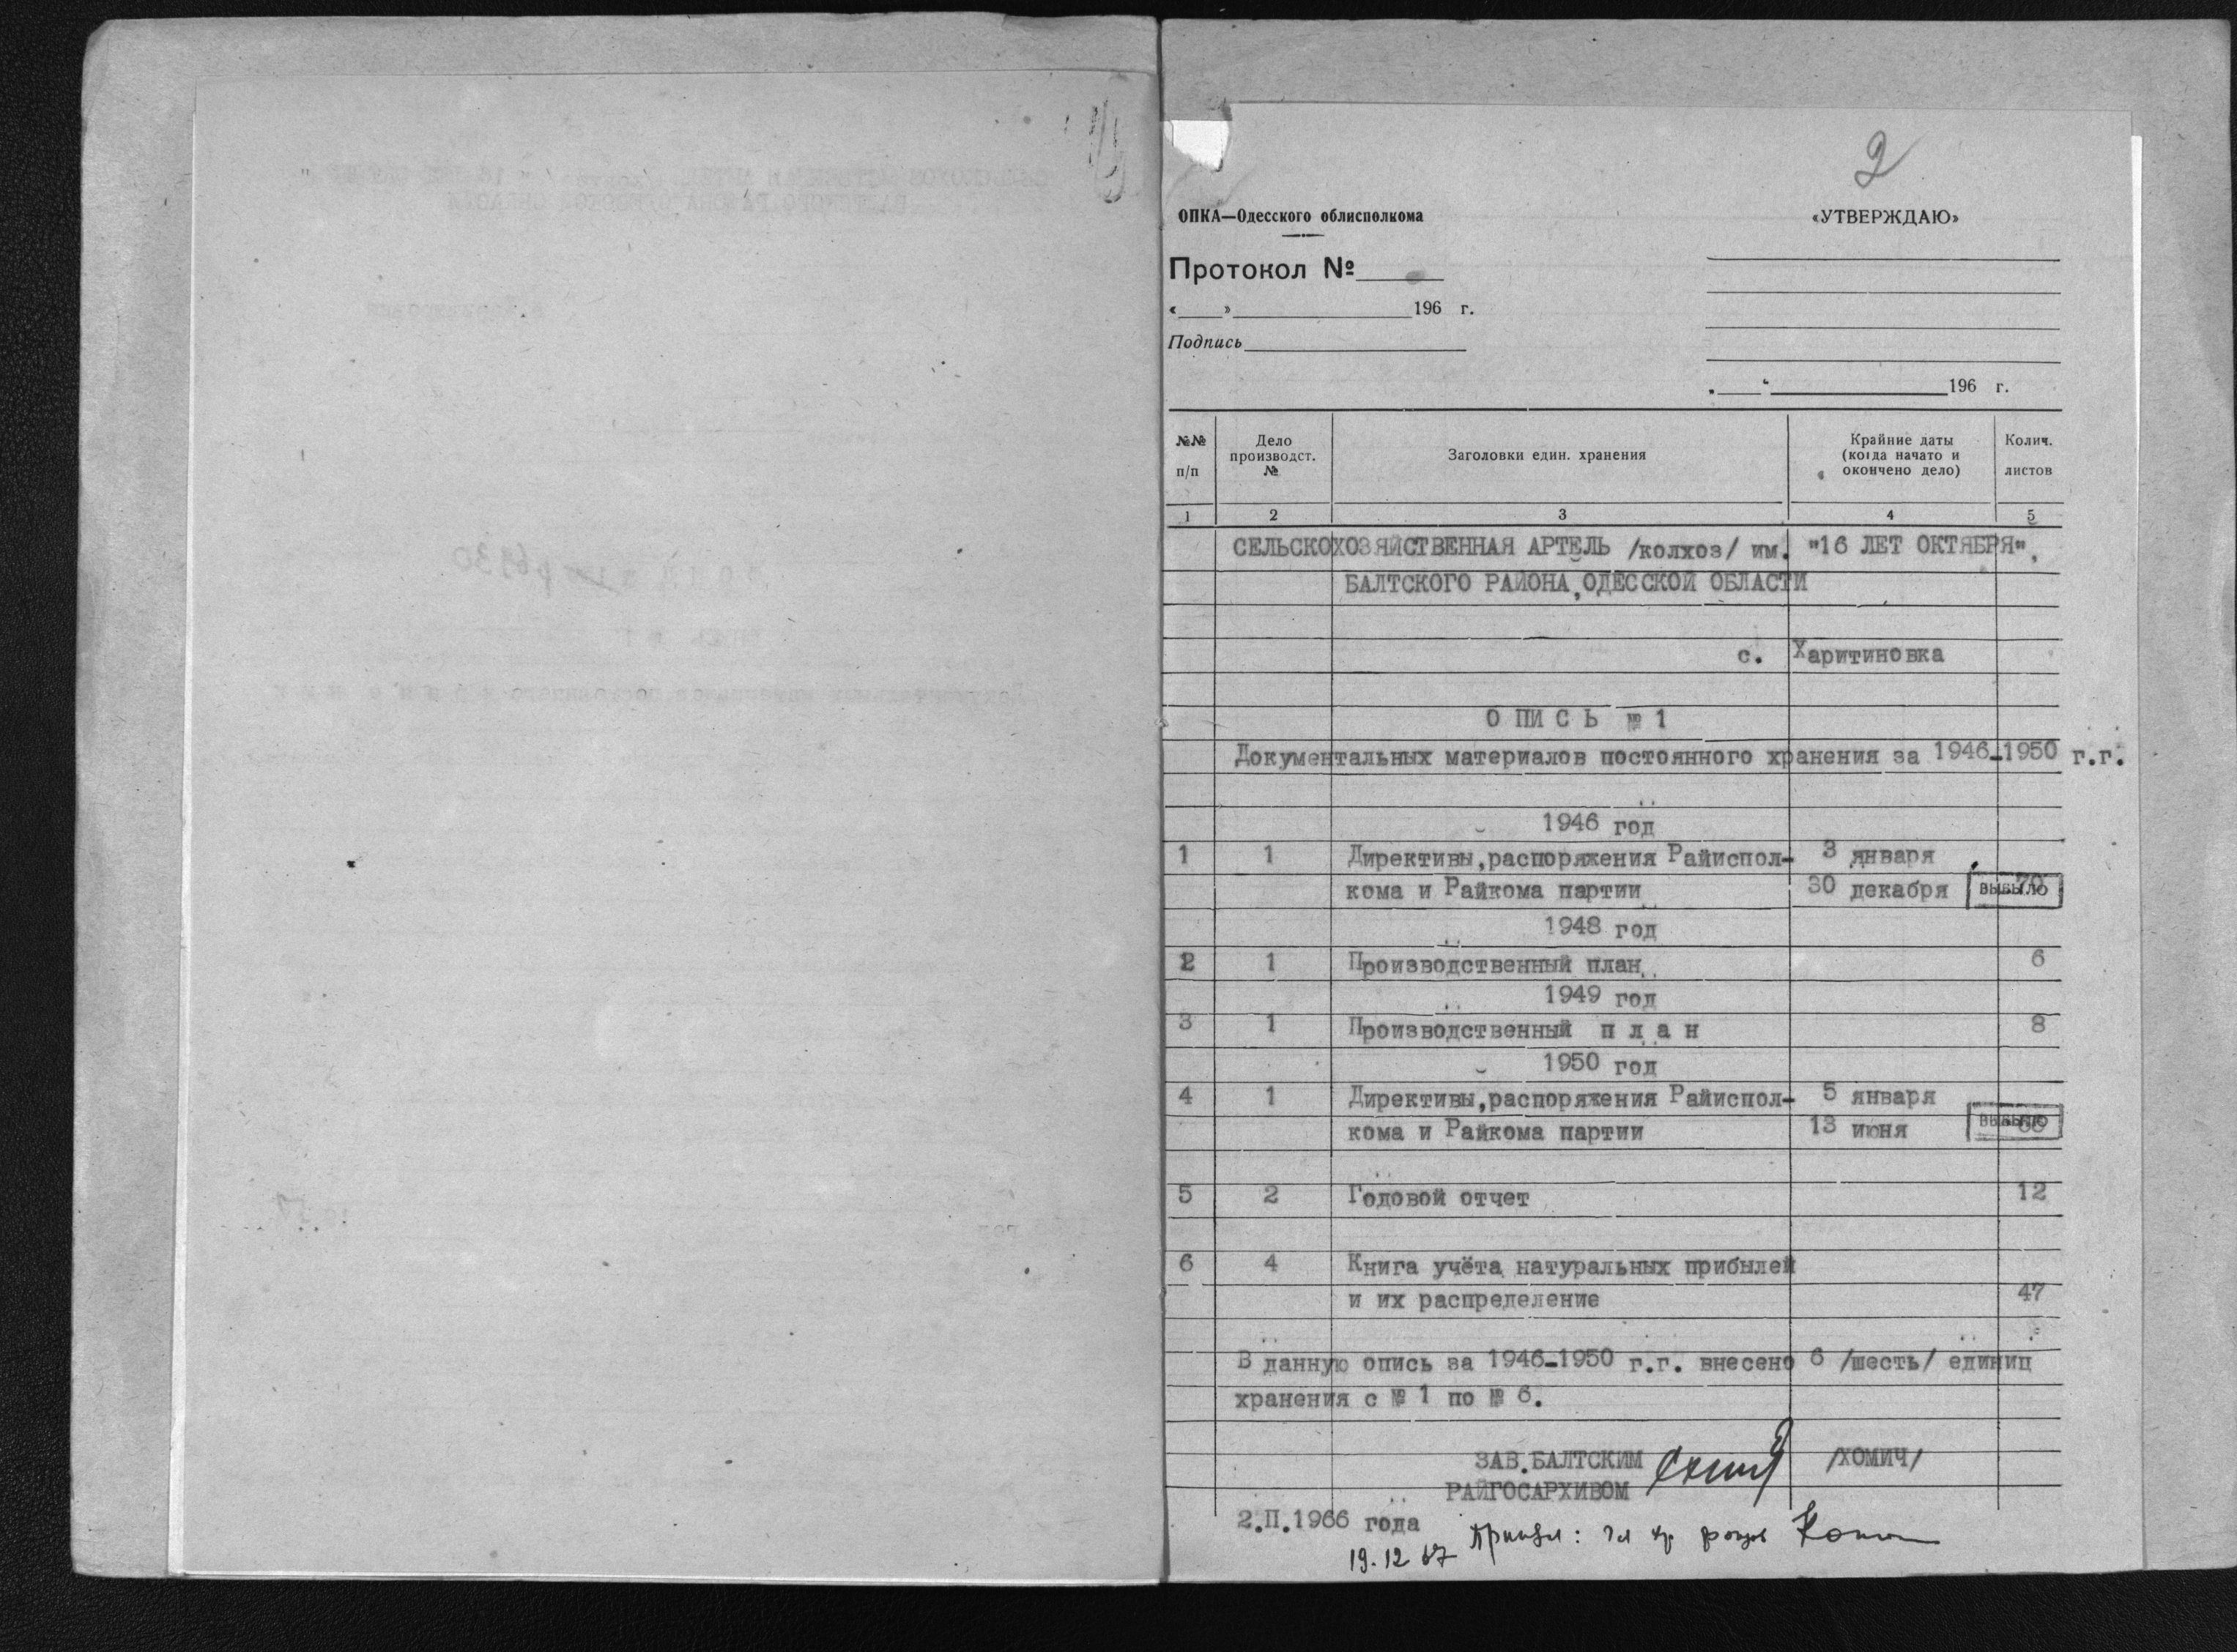 2
ОПКА—Одесского облисполкома
«УТВЕРЖДАЮ»
Протокол №
« » 196 г.
Подпись
196 г.
№№ п/п
Дело производст. №
Заголовки един. хранения
Крайние даты (когда начато и окончено дело)
Колич. листов
1 2 3 4 5
СЕЛЬСКОХОЗЯЙСТВЕННАЯ АРТЕЛЬ /колхоз/ им. "16 ЛЕТ ОКТЯБРЯ",
БАЛТСКОГО РАЙОНА,ОДЕССКОЙ ОБЛАСТИ
с. Харитиновка
О ПИ С Ь № 1
Документальных материалов постоянного хранения за 1946-1950 г.г.
1946 год
1 1 Директивы,распоряжения Райиспол- 3 января
кома и Райкома партии 30 декабря 70 ВЫБЫЛО
1948 год
2 1 Производственный план 6
1949 год
3 1 Производственный п л а н 8
1950 год
4 1 Директивы,распоряжения Райиспол- 5 января
кома и Райкома партии 13 июня ВЫБЫЛО
5 2 Годовой отчет 12
6 4 Книга учёта натуральных прибылей
и их распределение 47
В данную опись за 1946-1950 г.г. внесено 6 /шесть/ единиц
хранения с № 1 по № 6.
ЗАВ.БАЛТСКИМ /ХОМИЧ/
РАЙГОСАРХИВОМ
2.П.1966 года
19.12 67